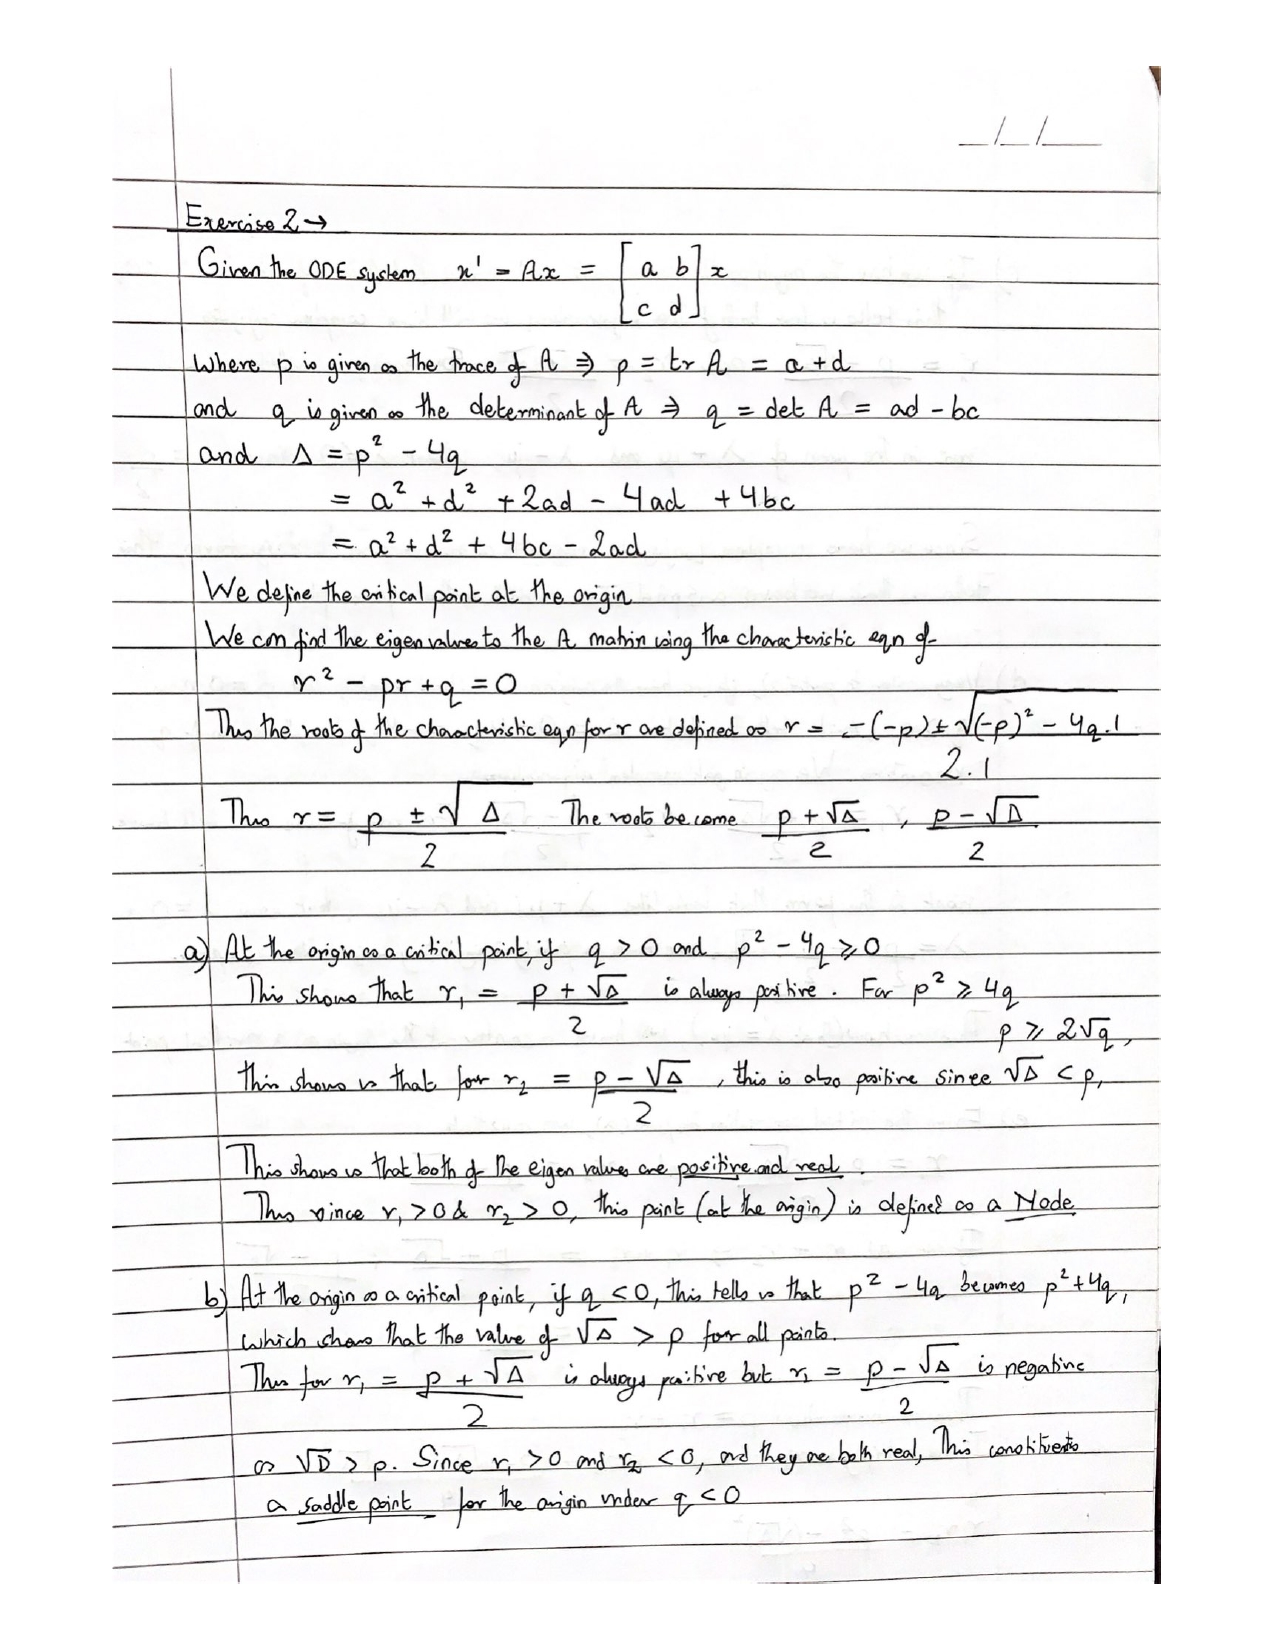 _/_/__
Exercise 2 →
Given the ODE system x' = Ax = [a b; c d] x
Where p is given as the trace of A ⇒ p = tr A = a + d
and q is given as the determinant of A ⇒ q = det A = ad - bc
and Δ = p² - 4q
= a² + d² + 2ad - 4ad + 4bc
= a² + d² + 4bc - 2ad
We define the critical point at the origin
We can find the eigen values to the A matrix using the characteristic eqn of
r² - pr + q = 0
Thus the roots of the characteristic eqn for r are defined as r = (-(-p) ± √((-p)² - 4q.1)) / 2.1
Thus r = (p ± √Δ) / 2 The roots become (p + √Δ) / 2 , (p - √Δ) / 2
a) At the origin as a critical point, if q > 0 and p² - 4q ≥ 0
This shows that r₁ = (p + √Δ) / 2 is always positive. For p² ≥ 4q
p ≥ 2√q,
This shows us that for r₂ = (p - √Δ) / 2 , this is also positive since √Δ < p,
This shows us that both of the eigen values are positive and real.
Thus since r₁ > 0 & r₂ > 0, this point (at the origin) is defined as a Node
b) At the origin as a critical point, if q < 0, this tells us that p² - 4q becomes p² + 4q,
which shows that the value of √Δ > p for all points.
Thus for r₁ = (p + √Δ) / 2 is always positive but r₂ = (p - √Δ) / 2 is negative
as √D > p. Since r₁ > 0 and r₂ < 0, and they are both real, This constitutes
a saddle point for the origin under q < 0